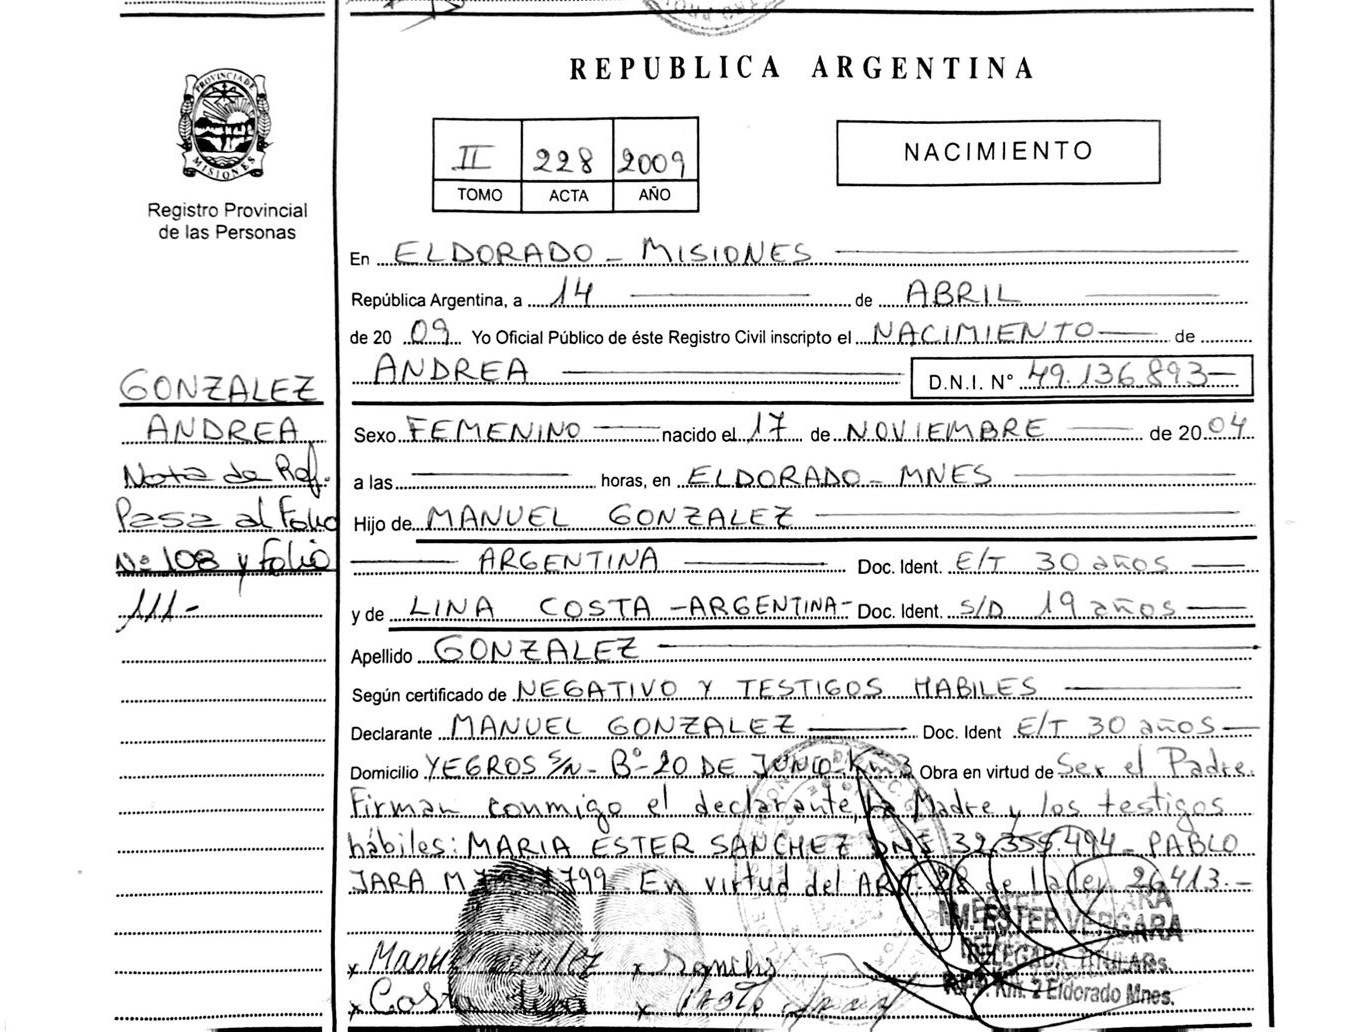 PROVINCIA DE
MISIONES
Registro Provincial
de las Personas
GONZALEZ
ANDREA
Nota de Ref.
Pasa al Folio
Nº 108 y folio
111-
REPUBLICA ARGENTINA
II 228 2009
TOMO ACTA AÑO
NACIMIENTO
En ELDORADO - MISIONES
República Argentina, a 14 de ABRIL
de 20 09 Yo Oficial Público de éste Registro Civil inscripto el NACIMIENTO de
ANDREA D.N.I. Nº 49.136.893
Sexo FEMENINO nacido el 17 de NOVIEMBRE de 20 04
a las horas, en ELDORADO - MNES
Hijo de MANUEL GONZALEZ
ARGENTINA Doc. Ident. E/T 30 años
y de LINA COSTA - ARGENTINA - Doc. Ident. S/D 19 años
Apellido GONZALEZ
Según certificado de NEGATIVO Y TESTIGOS HABILES
Declarante MANUEL GONZALEZ Doc. Ident E/T 30 años
Domicilio YEGROS S/N - Bº 20 DE JUNIO - Km 3 Obra en virtud de Ser el Padre.
Firman conmigo el declarante, la Madre y los testigos
hábiles: MARIA ESTER SANCHEZ DNI 32.358.494 - PABLO
JARA M 799. En virtud del ART. 28 de la Ley 26.413.-
M. ESTER VERGARA
DELEGADA TITULAR
Km. 2 Eldorado Mnes.
x Manuel Gonzalez x Sanchz
x Costa Lina x